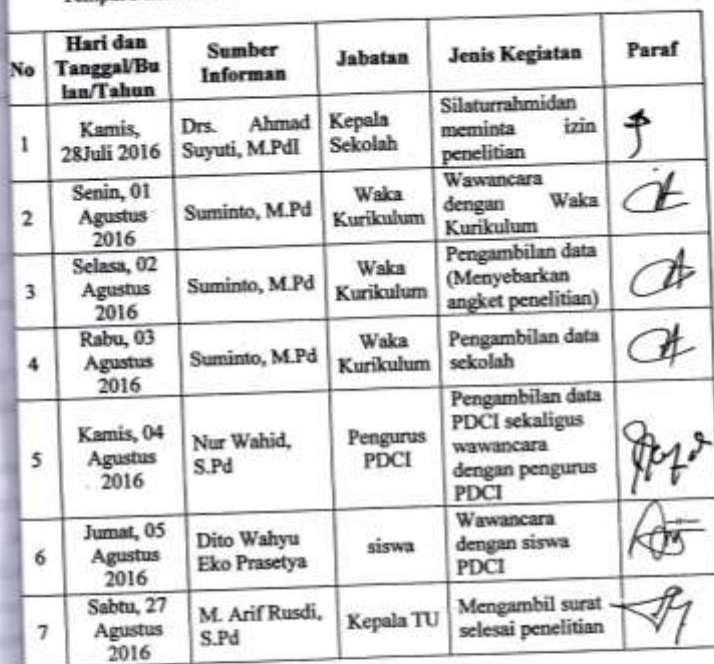 No
Hari dan
Tanggal/Bu
lan/Tahun
Sumber
Informan
Jabatan
Jenis Kegiatan
Paraf
1
Kamis,
28Juli 2016
Drs. Ahmad
Suyuti, M.PdI
Kepala
Sekolah
Silaturrahmidan
meminta izin
penelitian
2
Senin, 01
Agustus
2016
Suminto, M.Pd
Waka
Kurikulum
Wawancara
dengan Waka
Kurikulum
3
Selasa, 02
Agustus
2016
Suminto, M.Pd
Waka
Kurikulum
Pengambilan data
(Menyebarkan
angket penelitian)
4
Rabu, 03
Agustus
2016
Suminto, M.Pd
Waka
Kurikulum
Pengambilan data
sekolah
5
Kamis, 04
Agustus
2016
Nur Wahid,
S.Pd
Pengurus
PDCI
Pengambilan data
PDCI sekaligus
wawancara
dengan pengurus
PDCI
6
Jumat, 05
Agustus
2016
Dito Wahyu
Eko Prasetya
siswa
Wawancara
dengan siswa
PDCI
7
Sabtu, 27
Agustus
2016
M. Arif Rusdi,
S.Pd
Kepala TU
Mengambil surat
selesai penelitian